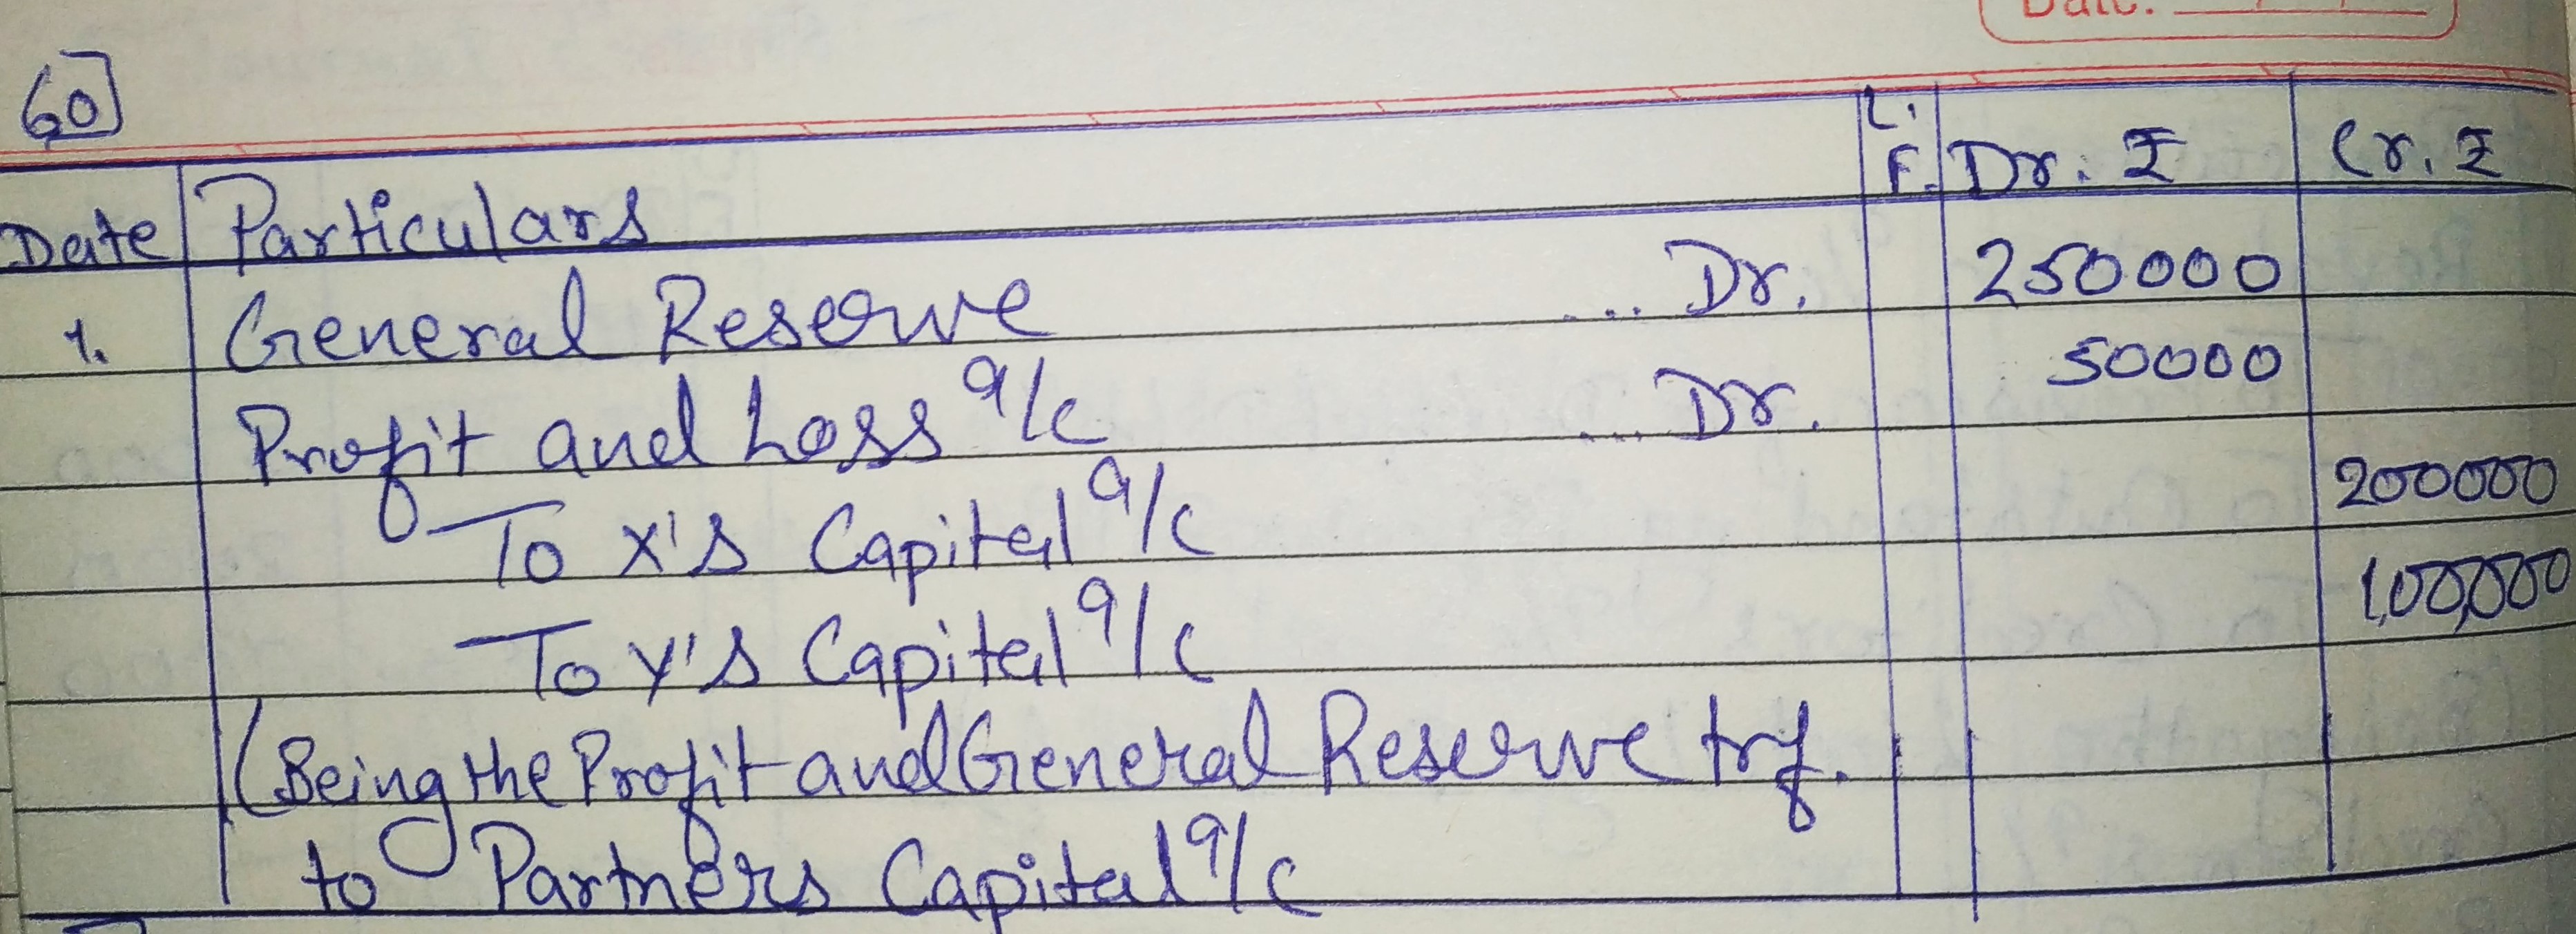 Date:
60]
Date Particulars L.F. Dr. ₹ Cr. ₹
1. General Reserve ... Dr. 250000
Profit and Loss a/c ... Dr. 50000
To X's Capital a/c 200000
To Y's Capital a/c 1,00,000
(Being the Profit and General Reserve trf.
to Partners Capital a/c